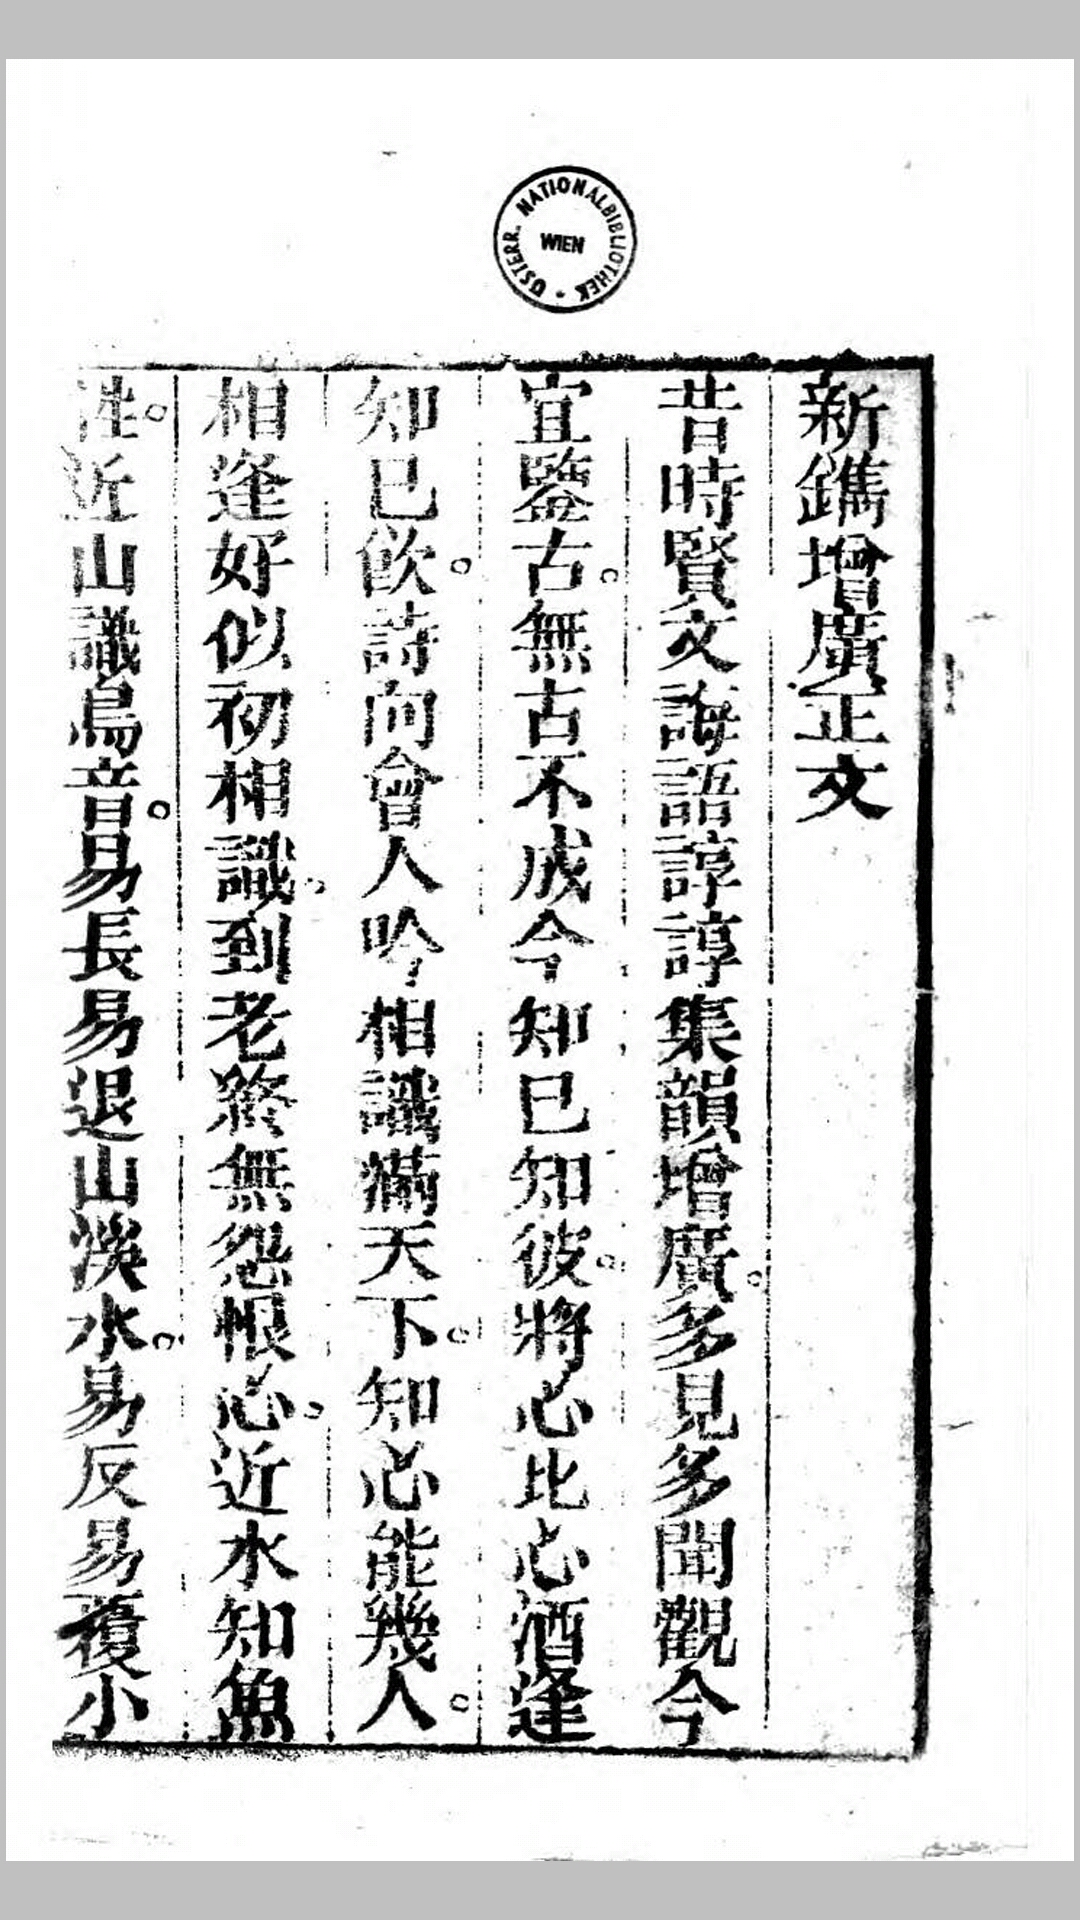 ÖSTERR. NATIONALBIBLIOTHEK
WIEN
新鐫增廣正文
昔時賢文誨語諄諄集韻增廣。多見多聞觀今
宜鑒古。無古不成今知巳知彼。將心比心酒逢
知巳飲。詩向會人吟相識滿天下。知心能幾人。
相逢好似初相識。到老終無怨恨心。近水知魚
性。近山識鳥音。易長易退山溪水。易反易覆小